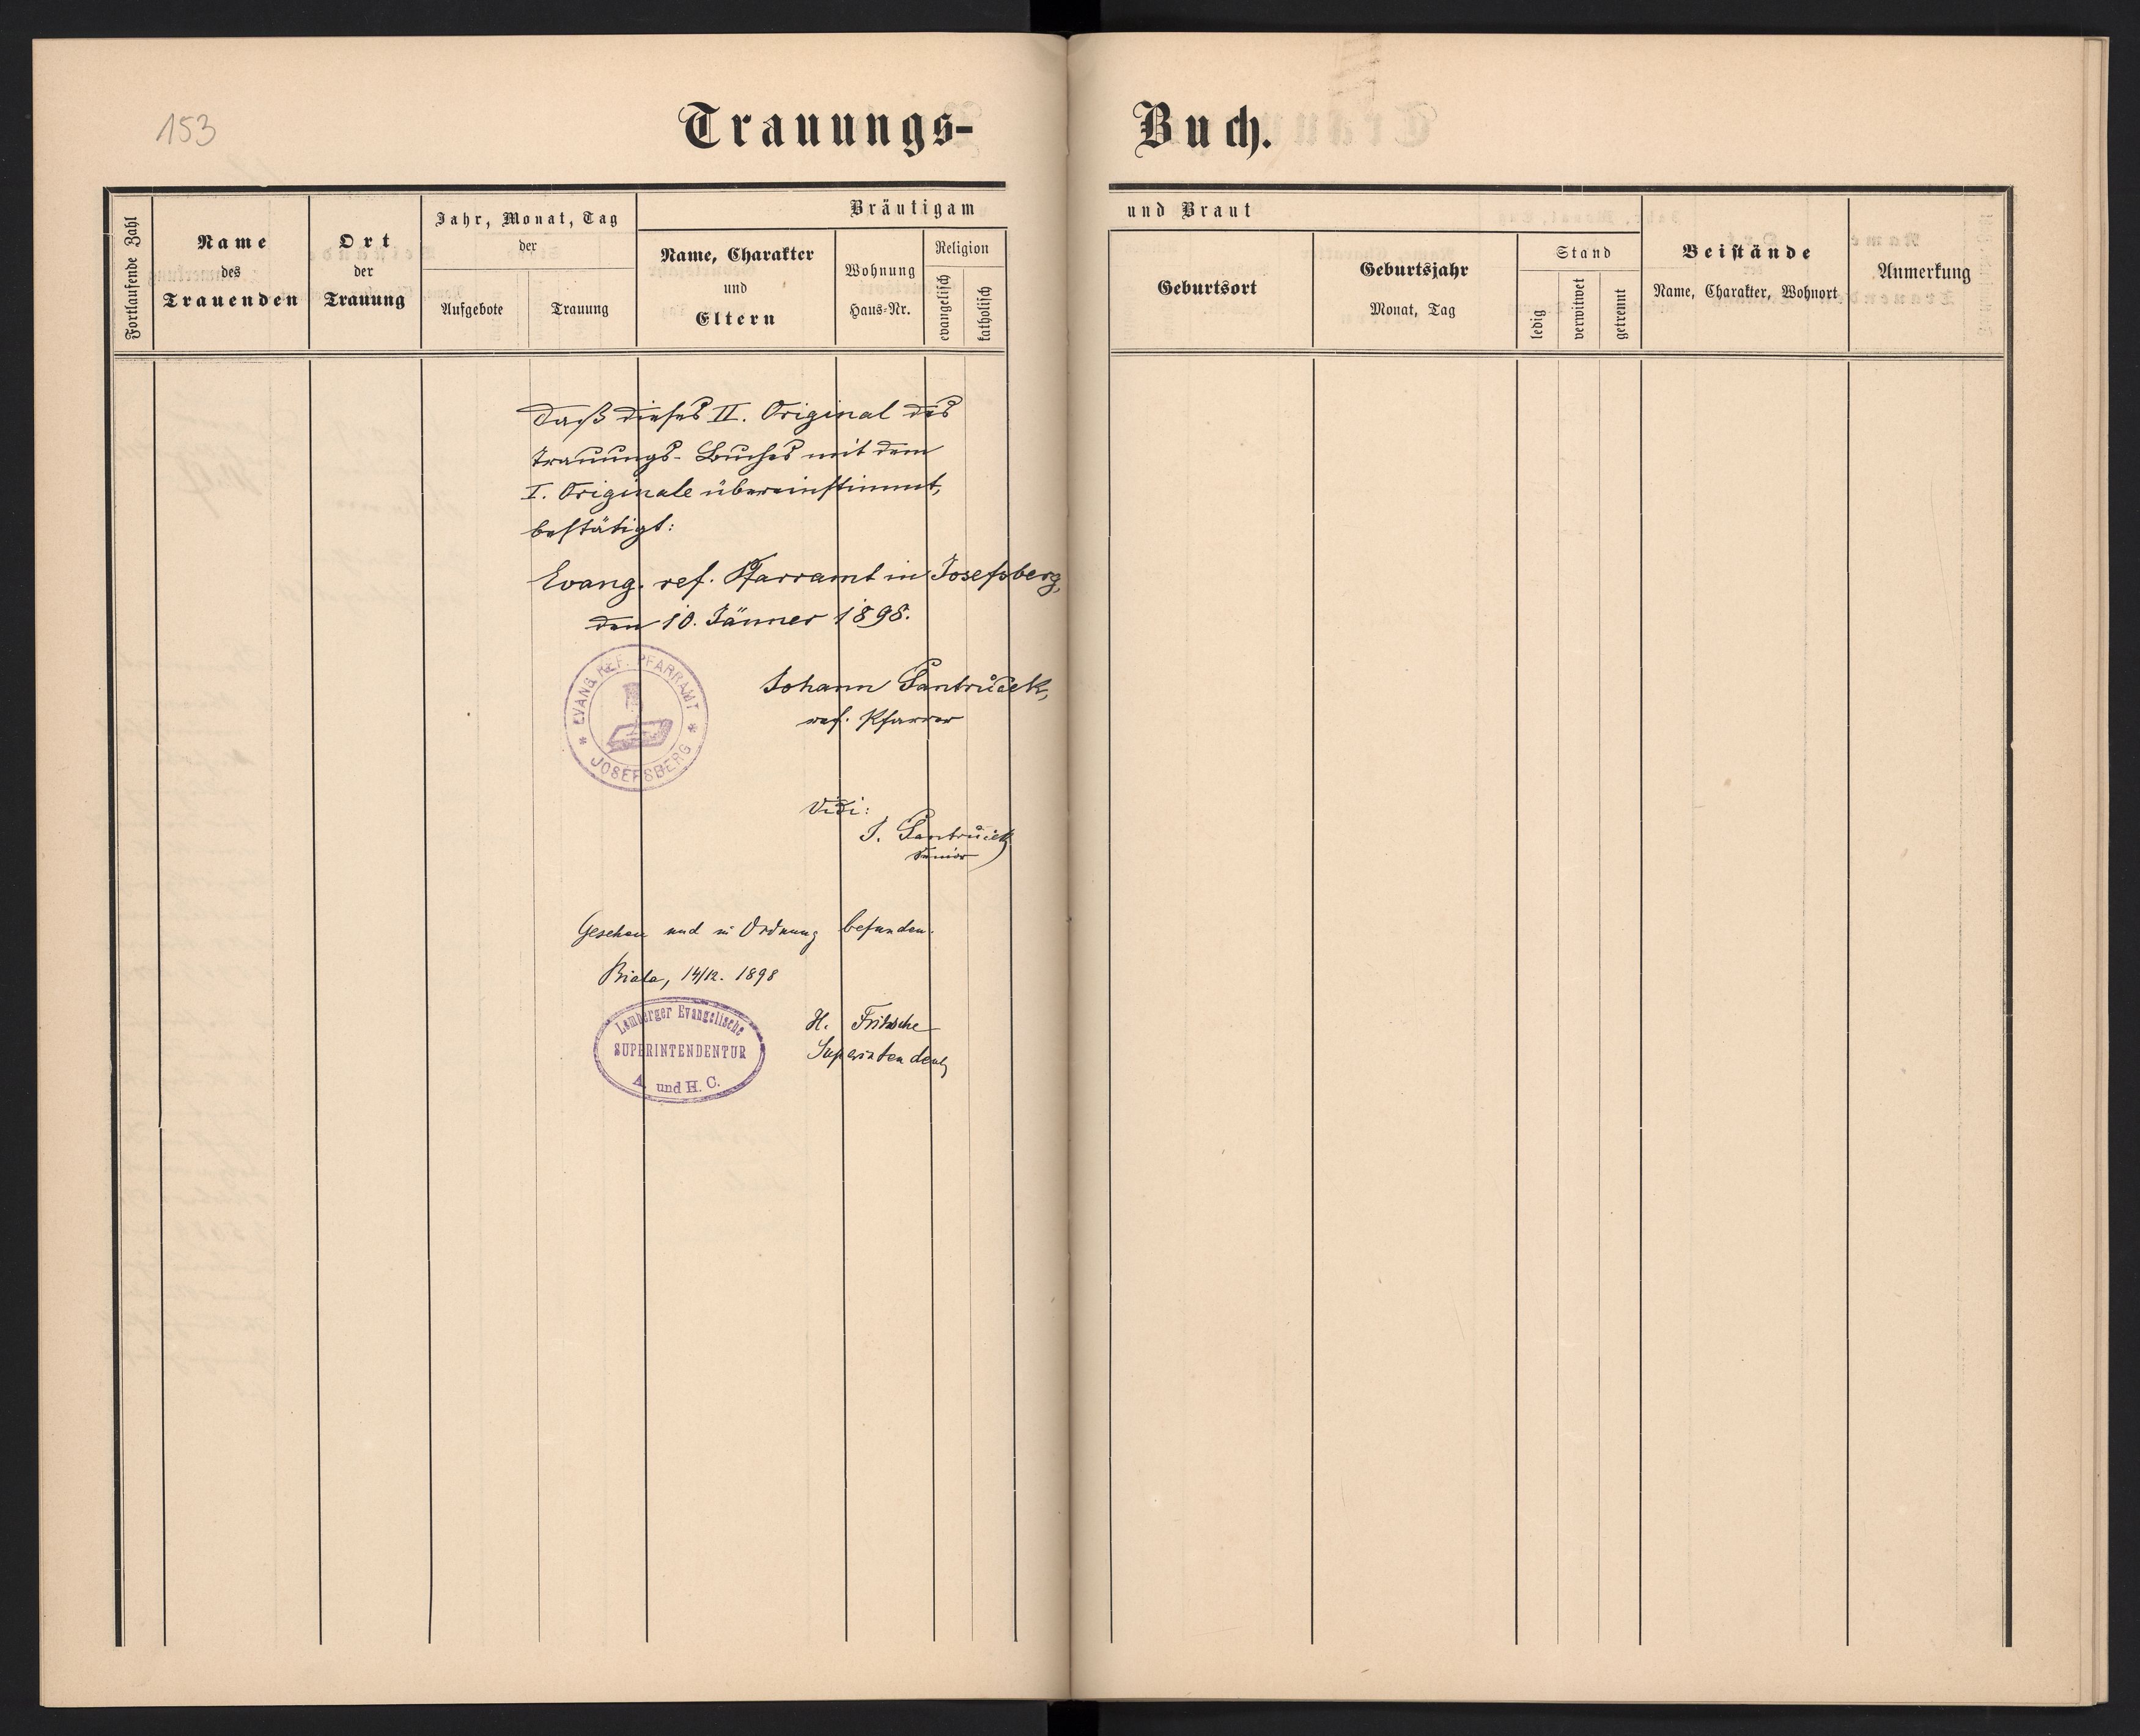 153
Trauungs-
Buch.
Fortlaufende Zahl
Name
des
Trauenden
Ort
der
Trauung
Jahr, Monat, Tag
der
Aufgebote
Trauung
Bräutigam
Name, Charakter
und
Eltern
Wohnung
Haus-Nr.
Religion
evangelisch
katholisch
und Braut
Geburtsort
Geburtsjahr
Monat, Tag
Stand
ledig
verwitwet
getrennt
Beistände
Name, Charakter, Wohnort
Anmerkung
Daß dieses II. Original des
Trauungs-Buches mit dem
I. Originale übereinstimmt,
bestätigt:
Evang. ref. Pfarramt in Josefsberg,
den 10. Jänner 1898.
EVANG. REF. PFARRAMT
* JOSEFSBERG *
Johann Pantrůček,
ref. Pfarrer
Vidi:
J. Pantrůček
Senior
Gesehen und in Ordnung befunden.
Biala, 14/12. 1898
Lemberger Evangelische
SUPERINTENDENTUR
A. und H. C.
H. Fritsche
Superintendent